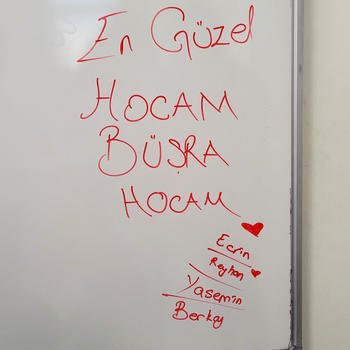 En Güzel
HOCAM
BÜŞRA
HOCAM
Ecrin
Reyhan
Yasemin
Berkay